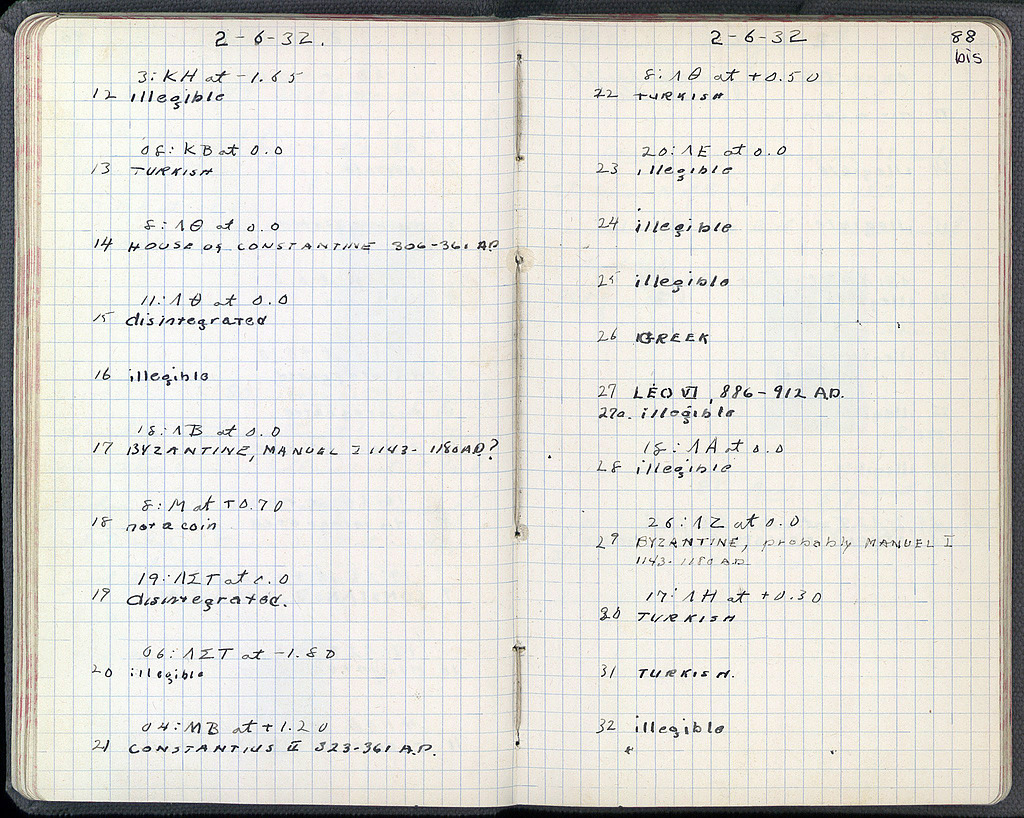 2-6-32.
3: KH at -1.65
12 illegible
08: KB at 0.0
13 TURKISH
8: ΛΘ at 0.0
14 HOUSE of CONSTANTINE 306-361 AD
11: ΛΘ at 0.0
15 disintegrated
16 illegible
18: ΛB at 0.0
17 BYZANTINE, MANUEL I 1143-1180 AD?
8: M at +0.70
18 not a coin
19: ΛΣΤ at 0.0
19 disintegrated.
06: ΛΣΤ at -1.80
20 illegible
04: MB at +1.20
21 CONSTANTIUS II 323-361 A.D.
2-6-32
88
bis
8: ΛΘ at +0.50
22 TURKISH
20: ΛE at 0.0
23 illegible
24 illegible
25 illegible
26 GREEK
27 LEO VI, 886-912 AD.
27a. illegible
18: ΛA at 0.0
28 illegible
26: ΛZ at 0.0
29 BYZANTINE, probably MANUEL I
1143-1180 AD
17: ΛH at +0.30
30 TURKISH
31 TURKISH.
32 illegible